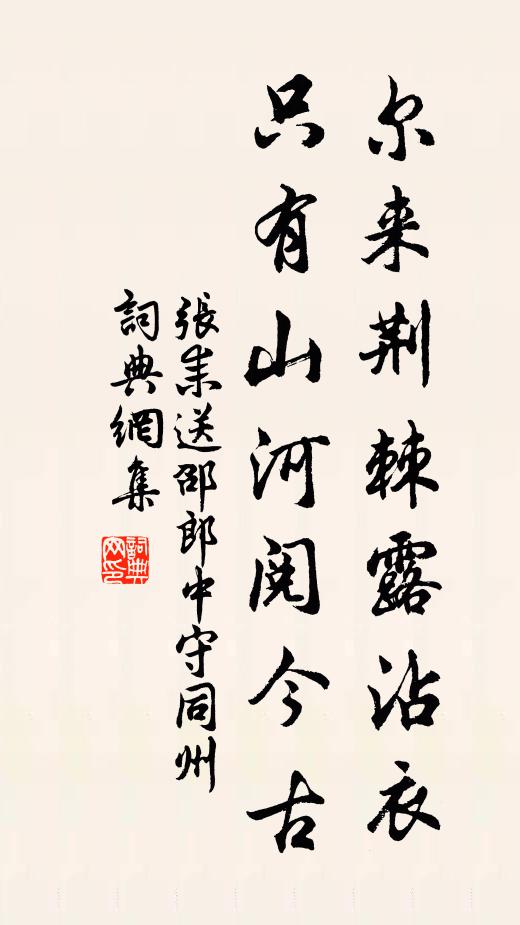 尔来荆棘露沾衣
只有山河阅今古
張耒送邵郎中守同州
詞典網集
詞典网印